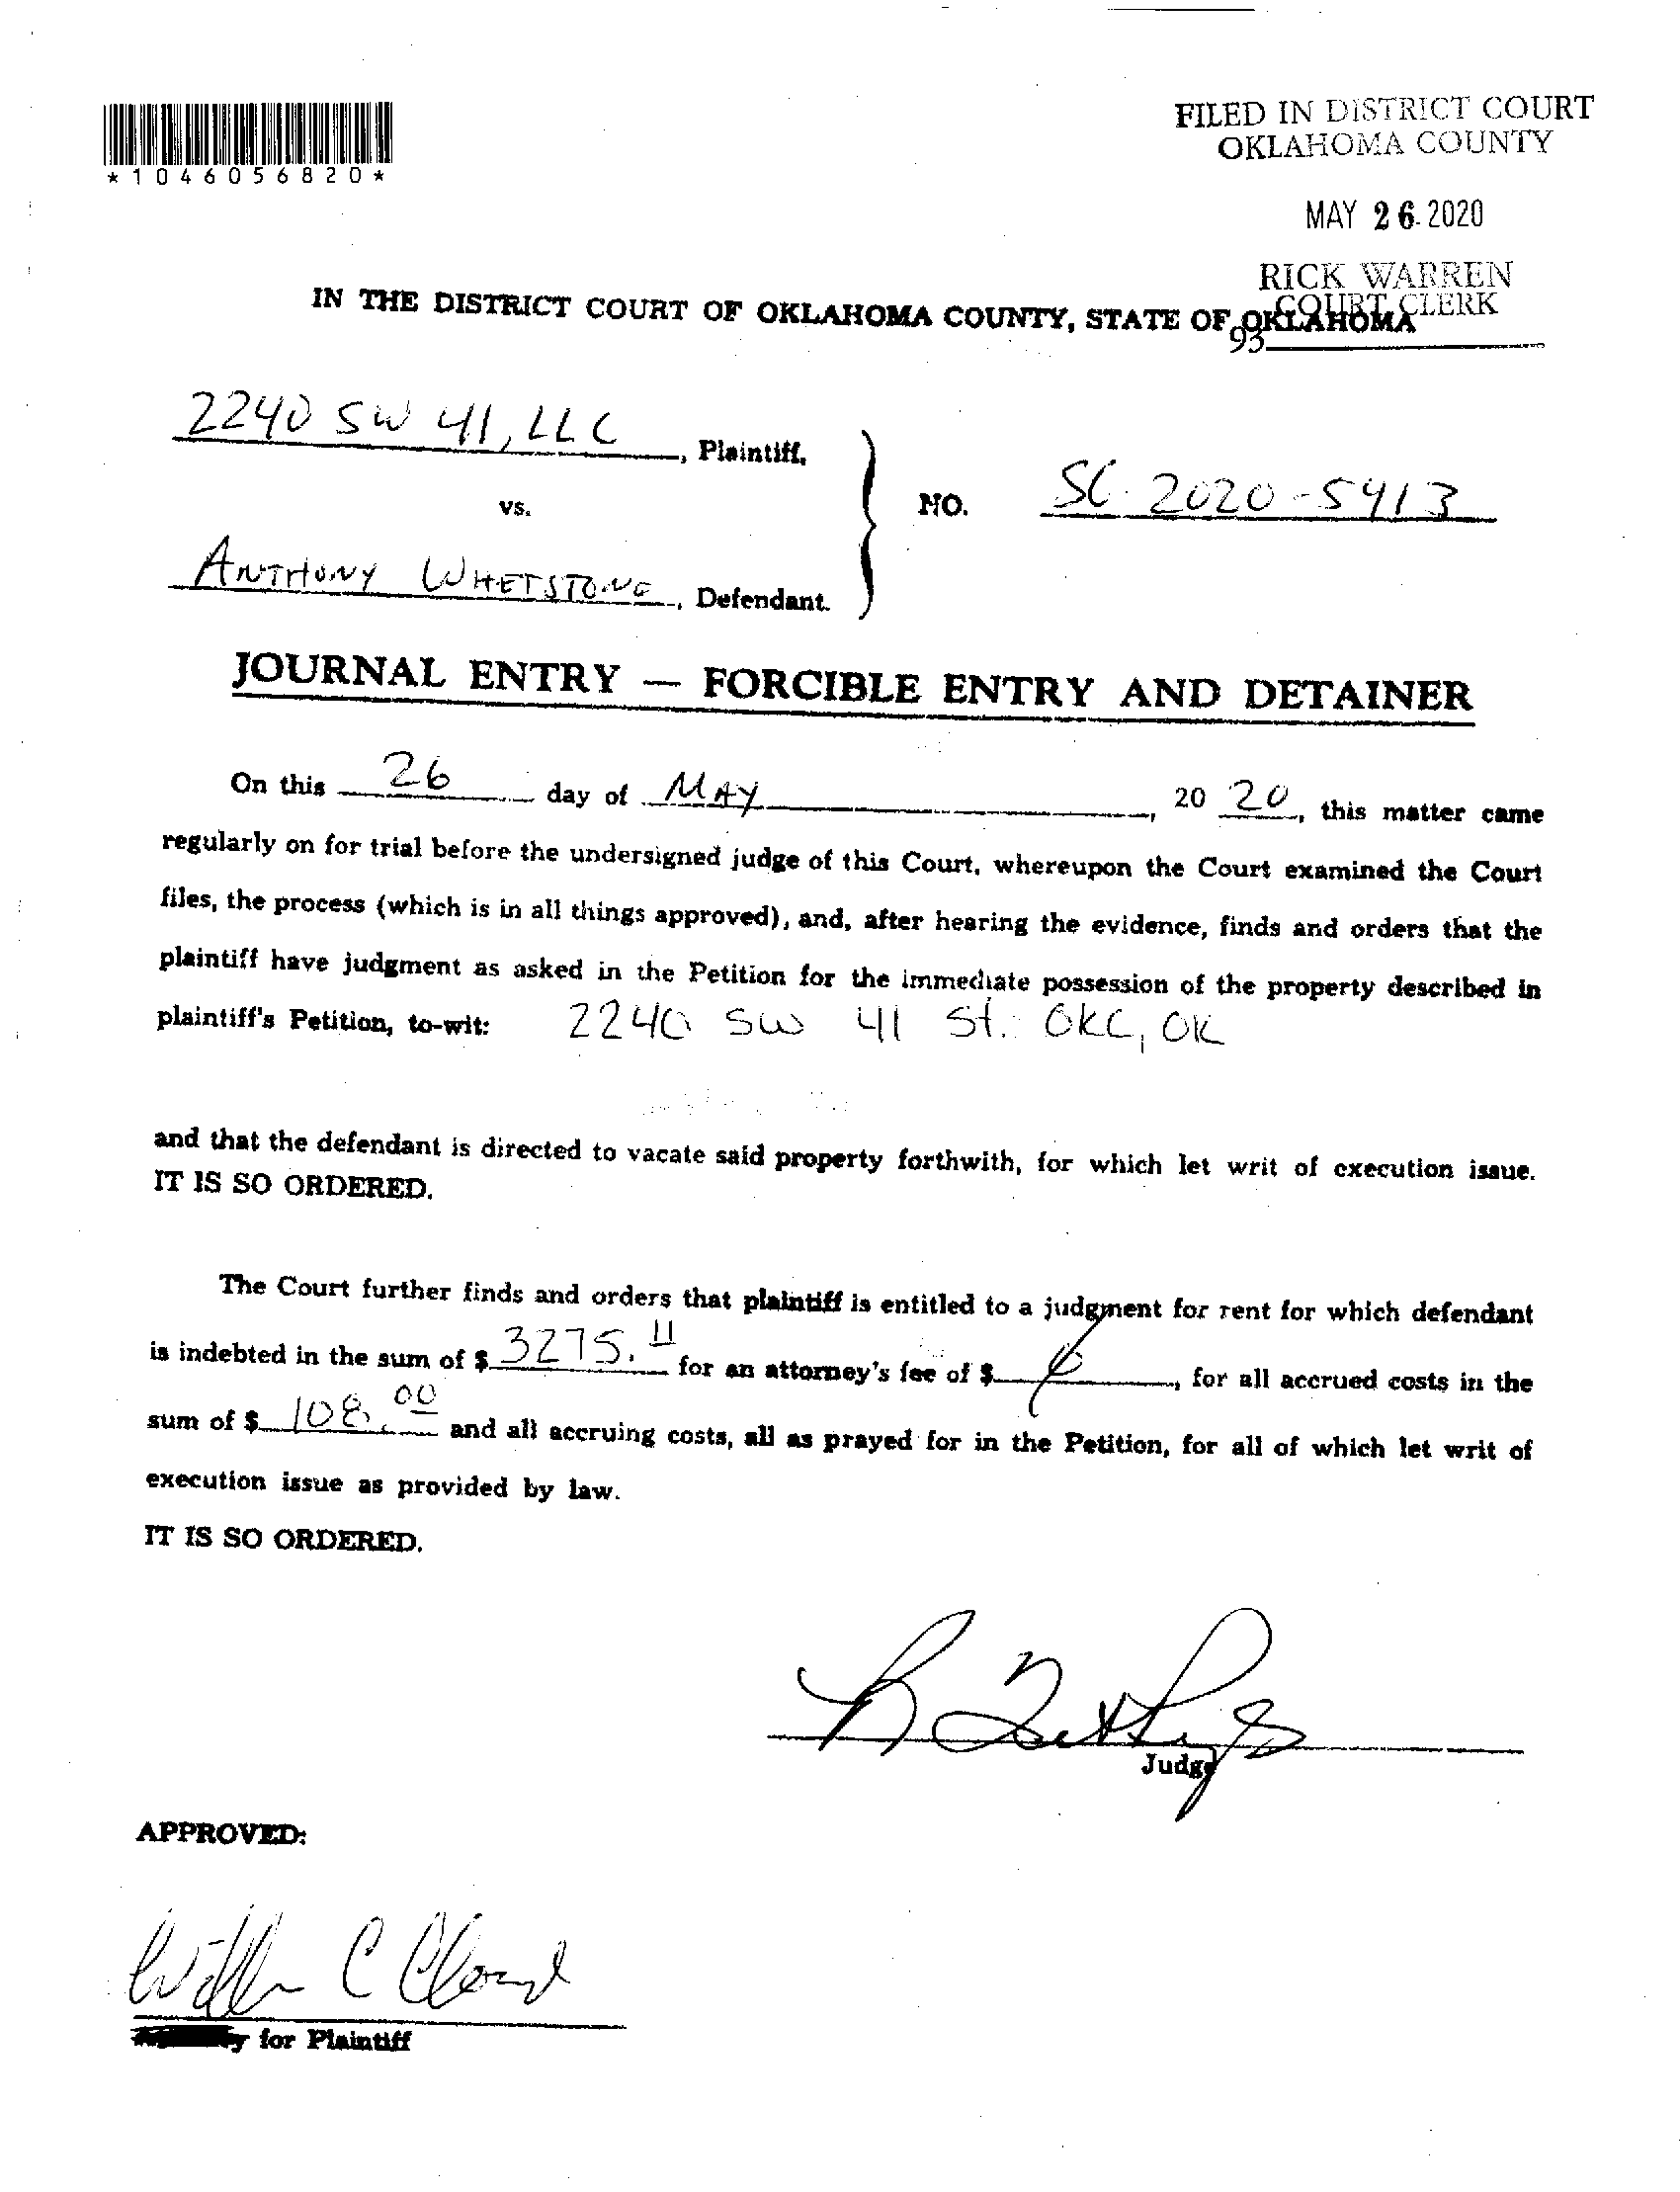 *1046056820*
FILED IN DISTRICT COURT
OKLAHOMA COUNTY
MAY 26 2020
RICK WARREN
COURT CLERK
93
IN THE DISTRICT COURT OF OKLAHOMA COUNTY, STATE OF OKLAHOMA
2240 SW 41, LLC, Plaintiff,
vs.
NO. SC 2020-5413
ANTHONY WHETSTONE, Defendant.
JOURNAL ENTRY — FORCIBLE ENTRY AND DETAINER
On this 26 day of MAY, 20 20, this matter came
regularly on for trial before the undersigned judge of this Court, whereupon the Court examined the Court
files, the process (which is in all things approved), and, after hearing the evidence, finds and orders that the
plaintiff have judgment as asked in the Petition for the immediate possession of the property described in
plaintiff's Petition, to-wit: 2240 SW 41 St. OKC, OK
and that the defendant is directed to vacate said property forthwith, for which let writ of execution issue.
IT IS SO ORDERED.
The Court further finds and orders that plaintiff is entitled to a judgment for rent for which defendant
is indebted in the sum of $ 3275.11 for an attorney's fee of $ , for all accrued costs in the
sum of $ 108.00 and all accruing costs, all as prayed for in the Petition, for all of which let writ of
execution issue as provided by law.
IT IS SO ORDERED.
Judge
APPROVED:
for Plaintiff